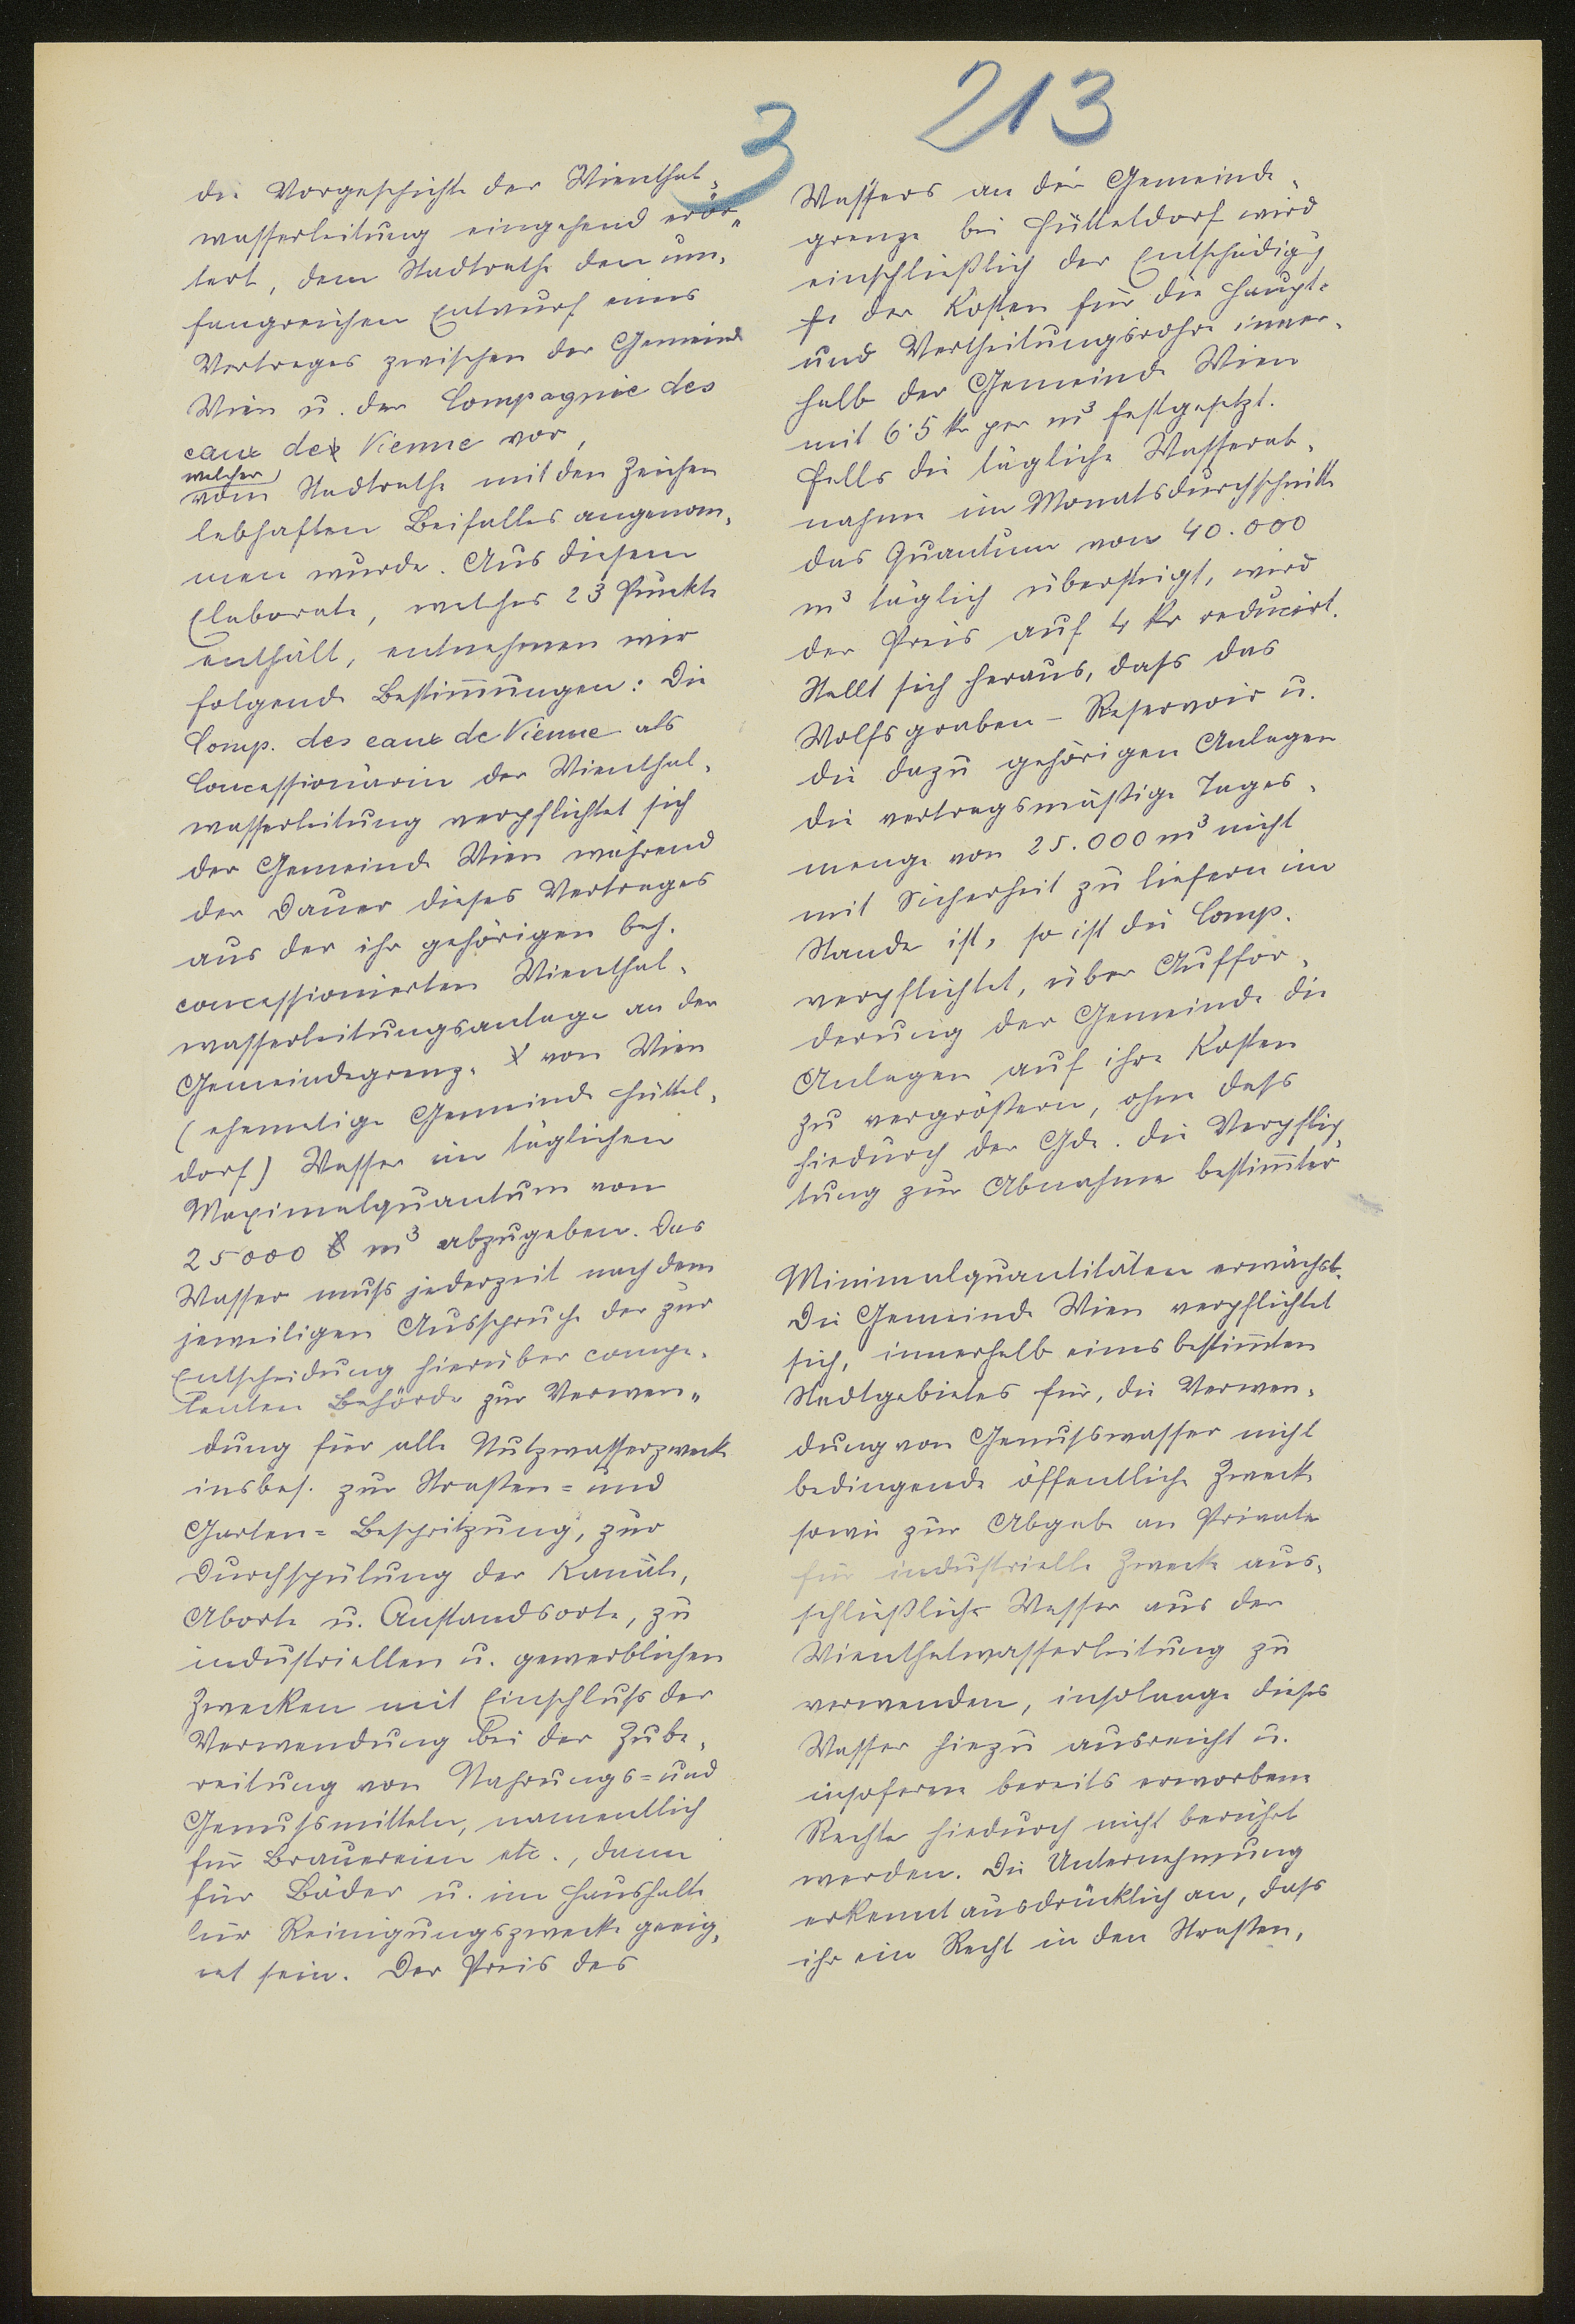 213
3
die Vorgeschichte der Wienthal-
wasserleitung eingehend erör-
tert, dem Stadtrathe den um-
fangreichen Entwurf eines
Vertrages zwischen der Gemeinde
Wien u. der Compagnie des
eaux de Vienne vor,
welcher
vom Stadtrathe mit den Zeichen
lebhaften Beifalles angenom-
men wurde. Aus diesem
Elaborate, welches 23 Punkte
enthält, entnehmen wir
folgende Bestim̄ungen: Die
Comp. des eaux de Vienne als
Concessionärin der Wienthal-
wasserleitung verpflichtet sich
der Gemeinde Wien während
der Dauer dieses Vertrages
aus der ihr gehörigen beh.
concessionierten Wienthal-
wasserleitungsanlage an der
Gemeindegrenze von Wien
(ehemalige Gemeinde Hüttel-
dorf) Wasser im täglichen
Maximalquantum von
25000 m³ abzugeben. Das
Wasser muß jederzeit nach dem
jeweiligen Ausspruche der zur
Entscheidung hierüber compe-
tenten Behörde zur Verwen-
dung für alle Nutzwasserzwecke
insbes. zur Straßen= und
Garten= Bespritzung, zur
Durchspülung der Kanäle,
Aborte u. Anstandsorte, zu
industriellen u. gewerblichen
Zwecken mit Einschluß der
Verwendung bei der Zube-
reitung von Nahrungs= und
Genußmitteln, namentlich
für Brauereien etc., dann
für Bäder u. im Haushalte
für Reinigungszwecke geeig-
net sein. Der Preis des
Wassers an der Gemeinde-
grenze bei Hütteldorf wird
einschließlich der Entschädigg
für den Kosten für die Haupt=
und Vertheilungsrohre inner-
halb der Gemeinde Wien
mit 6·5 kr per m³ festgesetzt.
Falls die tägliche Wasserab-
nahme im Monatsdurchschnitte
das Quantum von 40.000
m³ täglich übersteigt, wird
der Preis auf 4 kr reducirt.
Stellt sich heraus, daß das
Wolfsgraben-Reservoir u.
die dazu gehörigen Anlagen
die vertragsmäßige Tages-
menge von 25.000 m³ nicht
mit Sicherheit zu liefern im
Stande ist, so ist die Comp.
verpflichtet, über Auffor-
derung der Gemeinde die
Anlagen auf ihre Kosten
zu vergrößern, ohne daß
hiedurch der Gde. die Verpflich-
tung zur Abnahme bestim̄ter
Minimalquantitäten erwächst.
Die Gemeinde Wien verpflichtet
sich, innerhalb eines bestim̄ten
Stadtgebietes für, die Verwen-
dung von Genußwasser nicht
bedingende öffentliche Zwecke
sowie zur Abgabe an Private
für industrielle Zwecke aus-
schließlich Wasser aus der
Wienthalwasserleitung zu
verwenden, insolange dieses
Wasser hiezu ausreicht u.
insoferne bereits erworbene
Rechte hiedurch nicht berührt
werden. Die Unternehmung
erkennt ausdrücklich an, daß
ihr ein Recht in den Straßen,